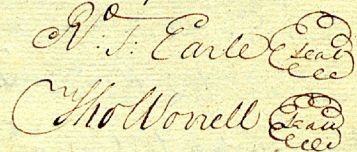 Rd: T: Earle Seal
Tho Worrell Seal